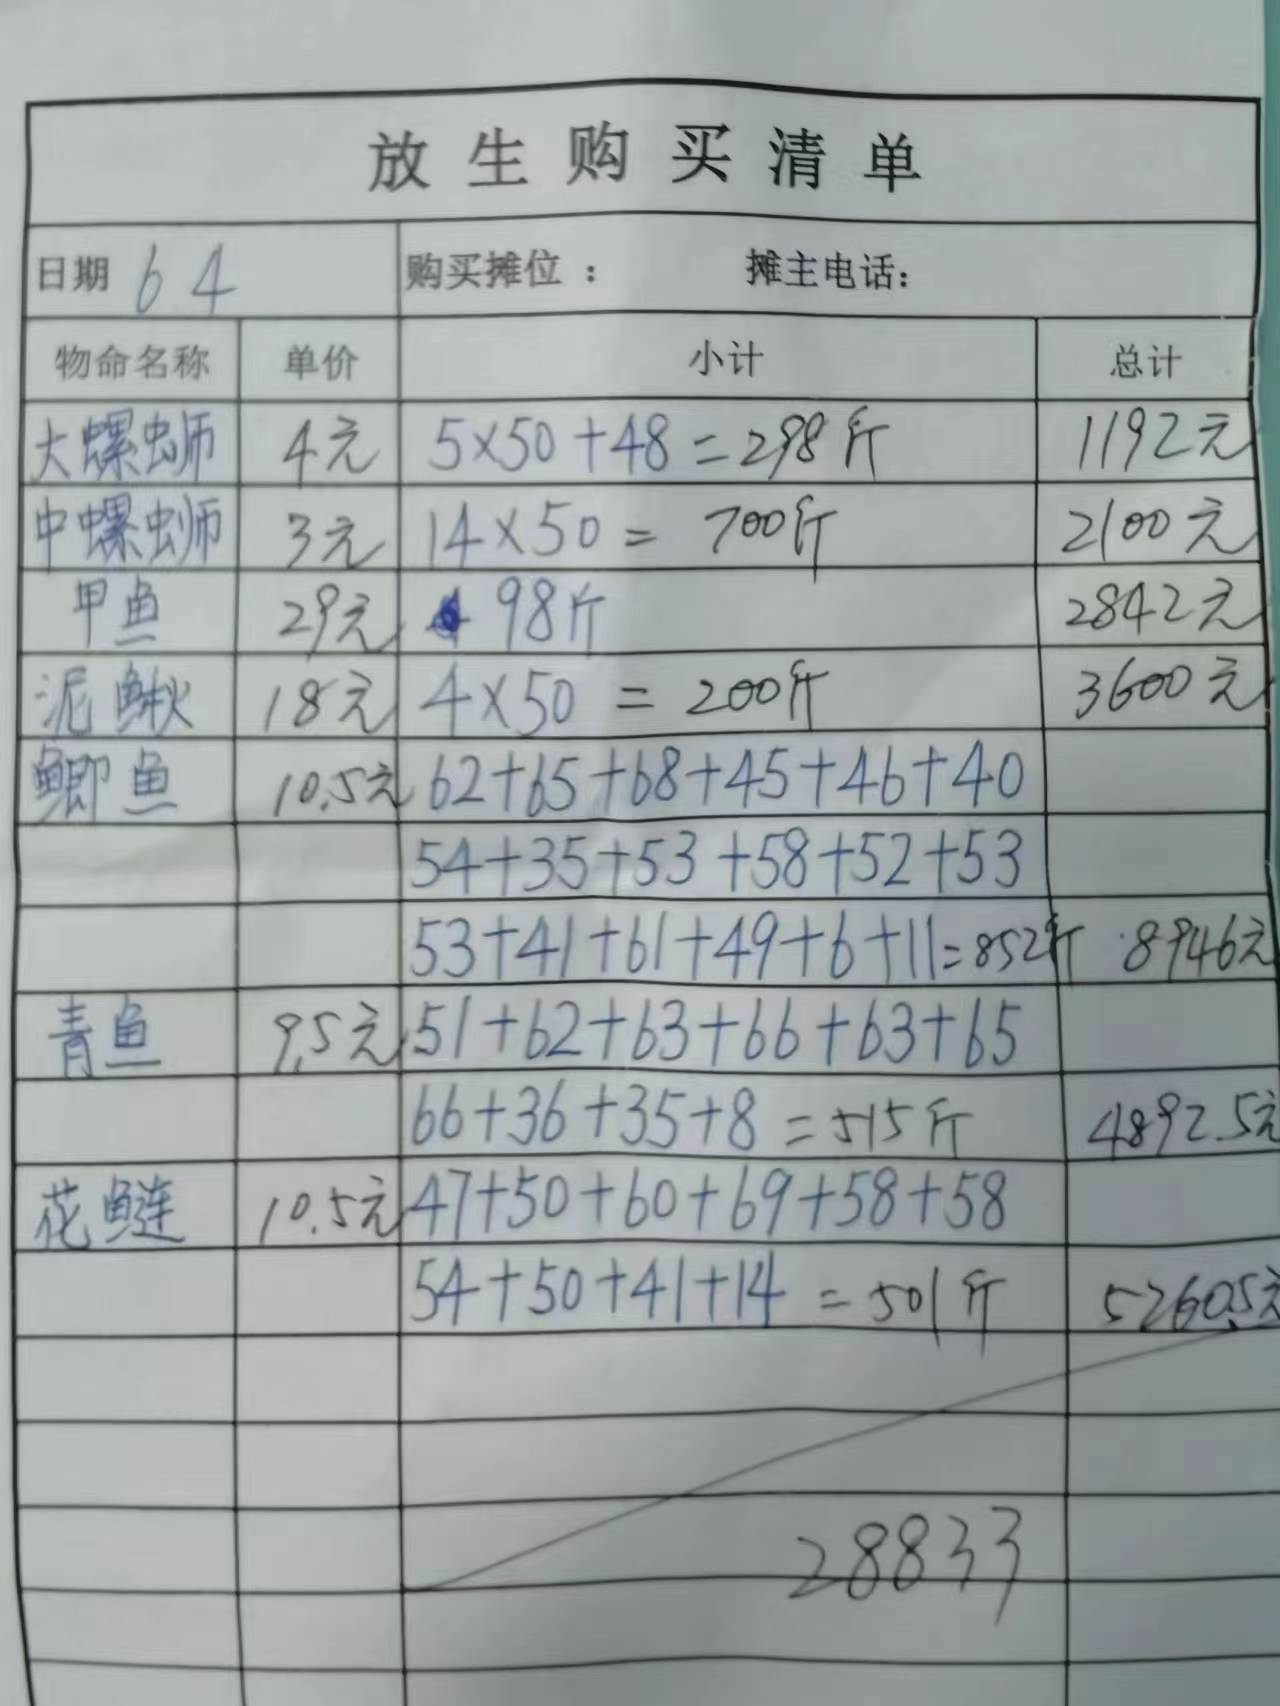 放生购买清单
日期 6 4 购买摊位： 摊主电话：
物命名称 单价 小计 总计
大螺蛳 4元 5×50+48=298斤 1192元
中螺蛳 3元 14×50= 700斤 2100元
甲鱼 29元 98斤 2842元
泥鳅 18元 4×50 = 200斤 3600元
鲫鱼 10.5元 62+65+68+45+46+40
54+35+53+58+52+53
53+41+61+49+6+11=852斤 8946元
青鱼 9.5元 51+62+63+66+63+65
66+36+35+8=515斤 4892.5元
花鲢 10.5元 47+50+60+69+58+58
54+50+41+14 =501斤 5260.5元
28833